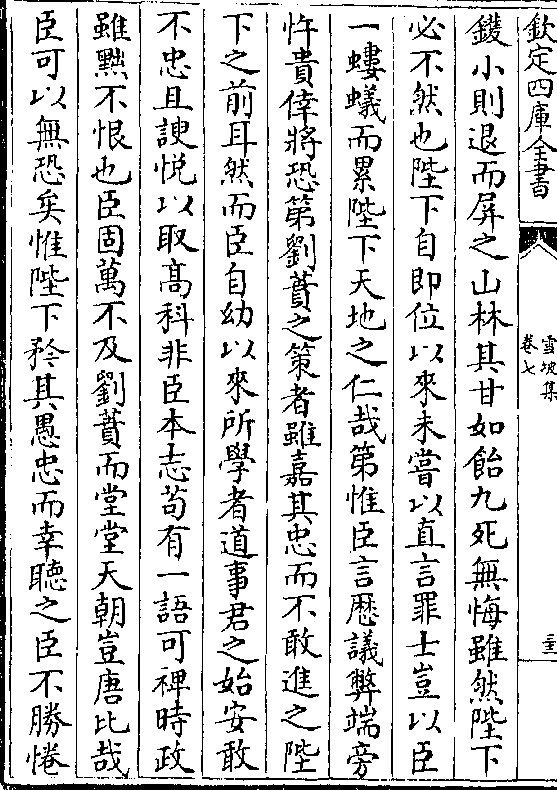 欽定四庫全書
雪坡集
卷七
三
鑊小則退而屏之山林其甘如飴九死無悔雖然陛下
必不然也陛下自即位以來未嘗以直言罪士豈以臣
一螻蟻而累陛下天地之仁哉第惟臣言歷議弊端旁
忤貴倖將恐第劉蕡之策者雖嘉其忠而不敢進之陛
下之前耳然而臣自幼以來所學者道事君之始安敢
不忠且諛悅以取髙科非臣本志苟有一語可裨時政
雖黜不恨也臣固萬不及劉蕡而堂堂天朝豈唐比哉
臣可以無恐矣惟陛下矜其愚忠而幸聽之臣不勝惓